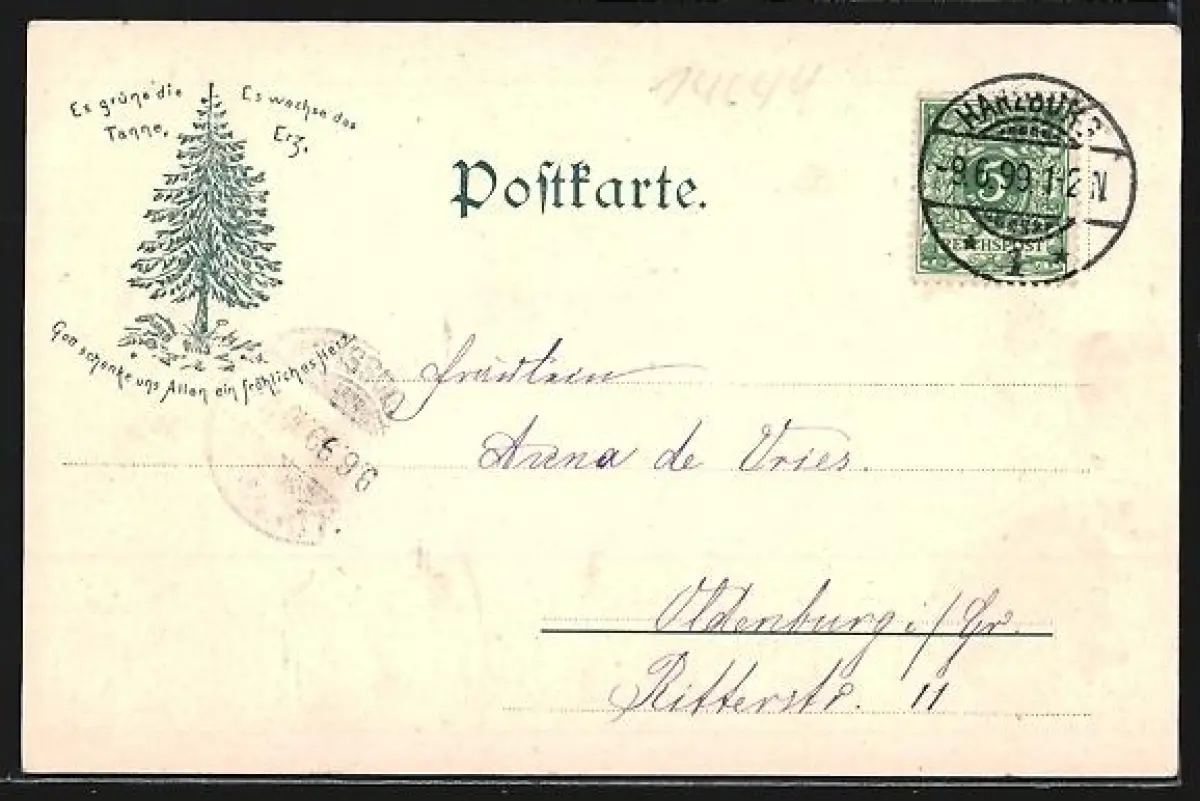 Es grüne die
Tanne,
Es wachse das
Erz,
Gott schenke uns Allen ein fröhliches Herz
14644
Postkarte.
HARZBURG
-9.6.99.1-2N
5
REICHSPOST
* 1 *
9.6.99
Fräulein
Anna de Vries.
Oldenburg i/Gr.
Ritterstr. 11